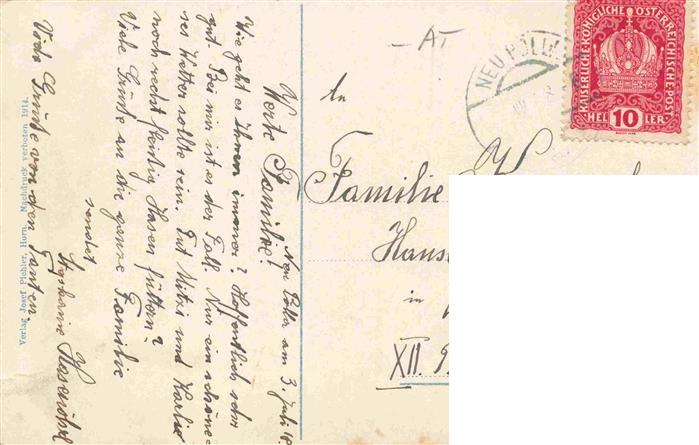 Neu Pölla am 3. Juli 18.
Werte Familie!
Wie geht es Ihnen immer? Hoffentlich sehr
gut. Bei mir ist es der Fall. Nur ein schöne-
res Wetter sollte sein. Tut Mitzi und Karli
noch recht fleißig Hasen füttern?
Viele Grüße an die ganze Familie
sendet
Stephanie
Viele Grüße von den Tanten.
Verlag Josef Pichler, Horn. Nachdruck verboten 1914.
AT
NEU PÖLLA
KAISERLICHE KÖNIGLICHE ÖSTERREICHISCHE POST
HEL 10 LER
An
Familie
Haus
in
XII. 9